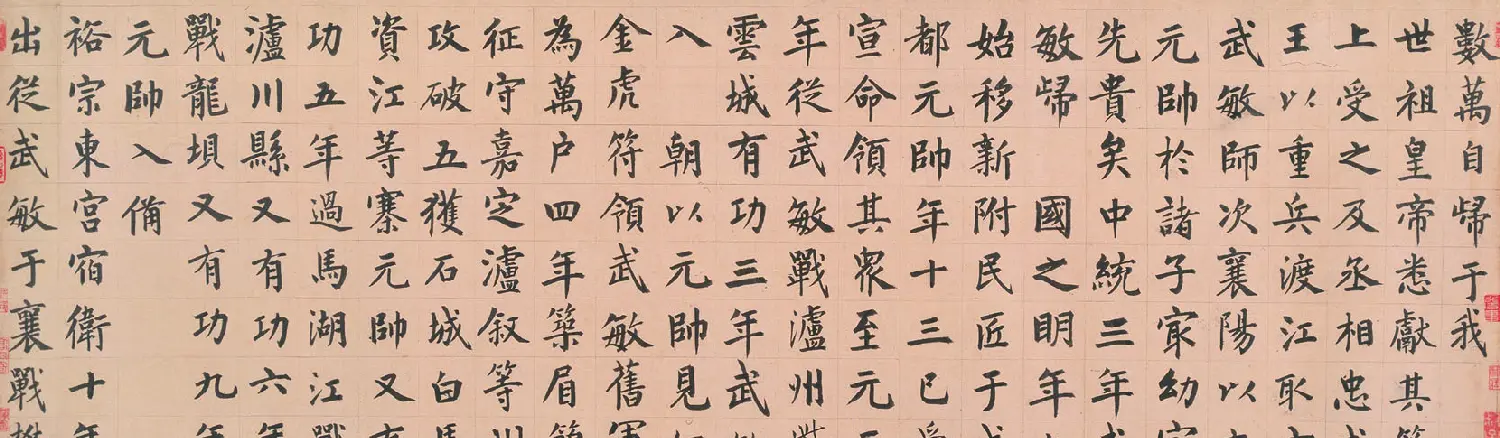 數萬自歸于我
世祖皇帝悉獻其
上受之及丞相忠
王以重兵渡江取
武敏師次襄陽以
元帥於諸子冣幼
先貴矣中統三年
敏歸 國之明年
始移新附民匠于
都元帥年十三已
宣命領其衆至元
年從武敏戰瀘州
雲城有功三年武
入 朝以元帥見
金虎符領武敏舊
為萬户四年築眉
征守嘉定瀘叙等
攻破五獲石城白
資江等寨元帥又
功五年過馬湖江
瀘川縣又有功六
戰龍垻又有功九
元帥入備
裕宗東宮宿衛十
出從武敏于襄戰